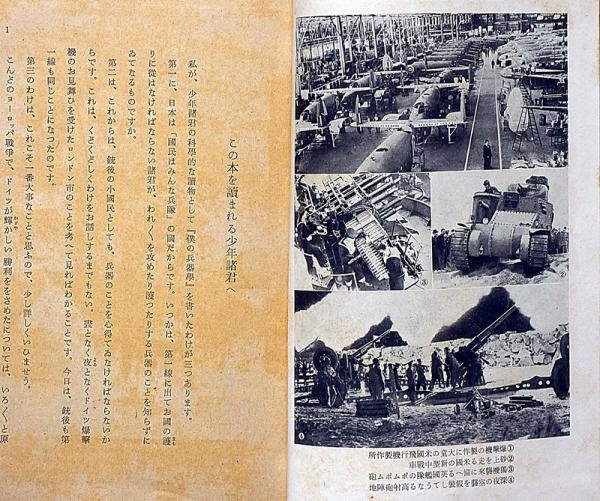 この本を讀まれる少年諸君へ
私が、少年諸君の科學的な讀物として『僕の兵器學』を書いたわけが三つあります。
第一に、日本は「國民はみんな兵隊」の國だからです。いつかは、第一線に出てお國の護
りに從はなければならない諸君が、われ〱を攻めたり護つたりする兵器のことを知らずに
ゐてなるものですか。
第二は、これからは、銃後の小國民としても、兵器のことを心得てゐなければならないか
らです。これは、くどくどしくわけをお話しするまでもない。晝となく夜となくドイツ爆撃
機のお見舞ひを受けたロンドン市のことを考へて見ればわかることです。今日は、銃後も第
一線も同じことになつたのです。
第三のわけは、これこそ一番大事なことと思ふので、少し詳しくいひませう。
こんどのヨーロッパ戰爭で、ドイツが輝かしい勝利ををさめたについては、いろ〱と原
1
①爆撃機の製作に大童の米國飛行機製作所
②砂上を走る米國の新型中戰車
③獨機襲來に備へる英國艦隊のポムポム砲
④深夜の空襲を假裝してうなる高射砲陣地
②
③
④